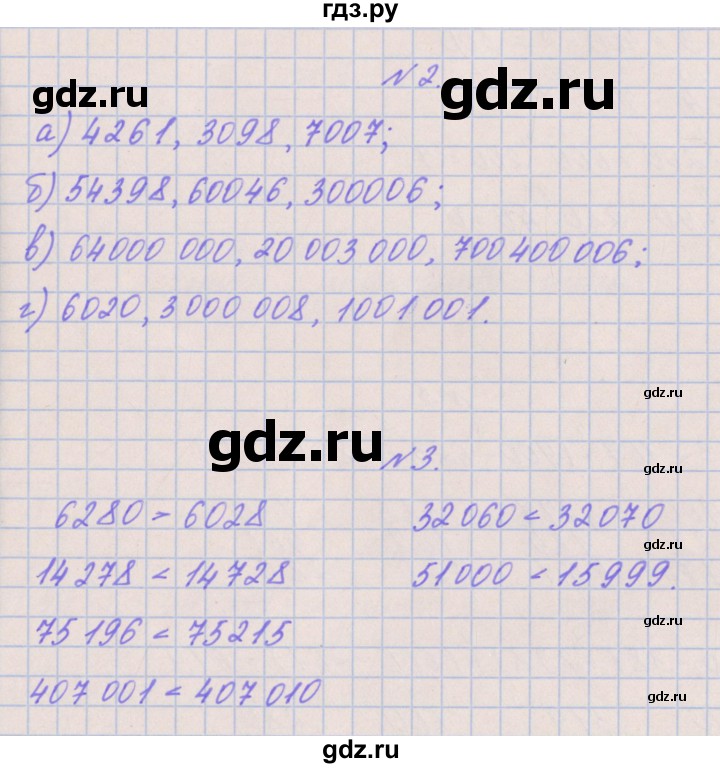 гдз.ру
№2.
gdz.ru
gdz.ru
а) 4261, 3098, 7007;
б) 54398, 60046, 300006;
в) 64000 000, 20 003 000, 700 400 006;
г) 6020, 3 000 008, 1001 001.
gdz.ru
gdz.ru
№3.
gdz.ru
6280 > 6028
32 060 < 32 070
gdz.ru
14 278 < 14 728
51000 < 15 999.
75 196 < 75 215
gdz.ru
407 001 < 407 010
gdz.ru
gdz.ru